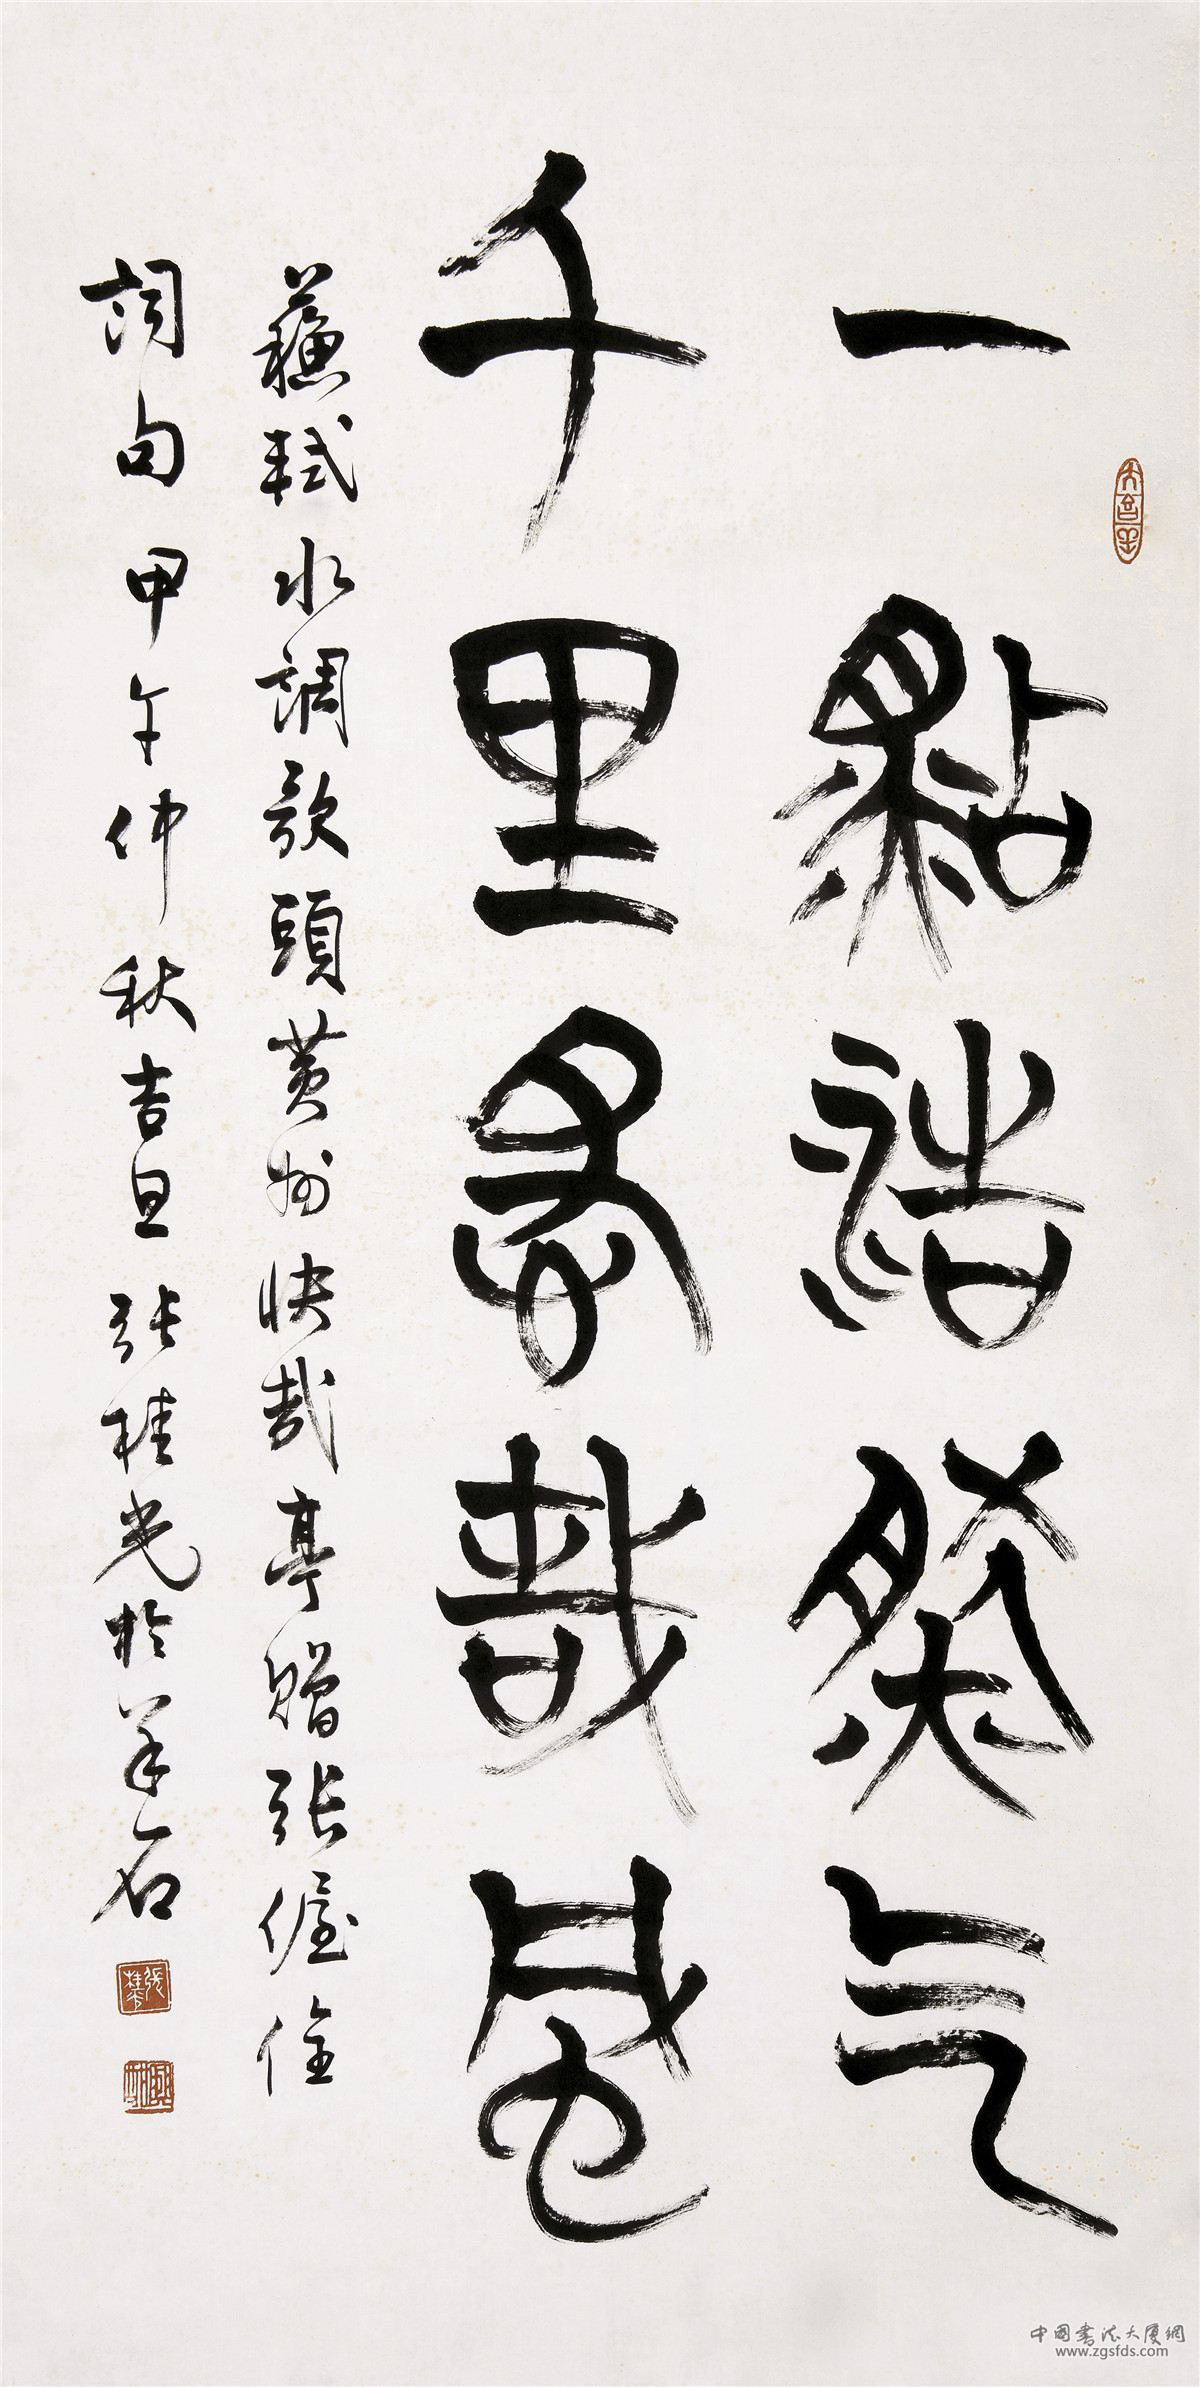 一點浩然气
千里快哉風
蘇軾水調歌頭黄州快哉亭贈張偓佺
詞句甲午仲秋吉旦張桂光於羊石
中国書法大厦網
www.zgsfds.com